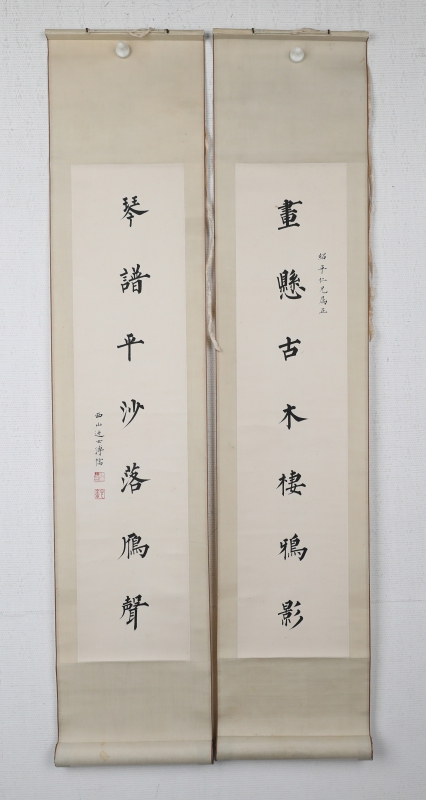 畫懸古木棲鴉影
紹平仁兄屬正
琴譜平沙落鴈聲
西山逸士溥儒